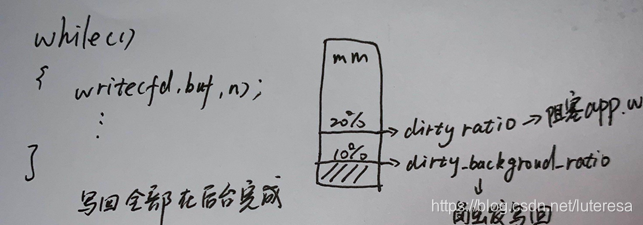 while()
{
write(fd,buf,n);
⋮
}
写回全部在后台完成
mm
20%
10%
dirty ratio → 阻塞app.w
dirty_backgroud_ratio
写回
https://blog.csdn.net/luteresa